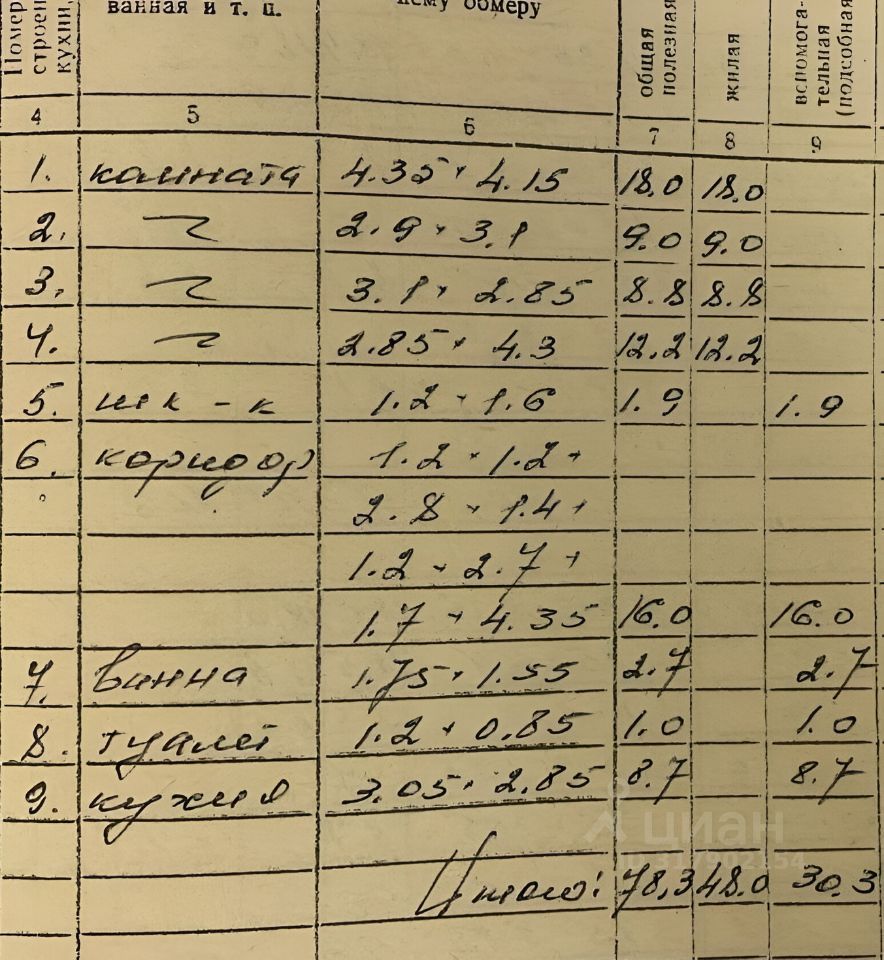 Номер
строен
кухни,
ванная и т. п.
нему обмеру
общая
полезная
жилая
вспомога-
тельная
(подсобная
4 5 6 7 8 9
1. комната 4.35 × 4.15 18.0 18.0
2. 〃 2.9 × 3.1 9.0 9.0
3. 〃 3.1 × 2.85 8.8 8.8
4. 〃 2.85 × 4.3 12.2 12.2
5. шк-к 1.2 × 1.6 1.9 1.9
6. коридор 1.2 × 1.2 +
2.8 × 1.4 +
1.2 × 2.7 +
1.7 × 4.35 16.0 16.0
7. ванна 1.75 × 1.55 2.7 2.7
8. туалет 1.2 × 0.85 1.0 1.0
9. кухня 3.05 × 2.85 8.7 8.7
циан
ID 317902154
Итого: 78,3 48.0 30.3